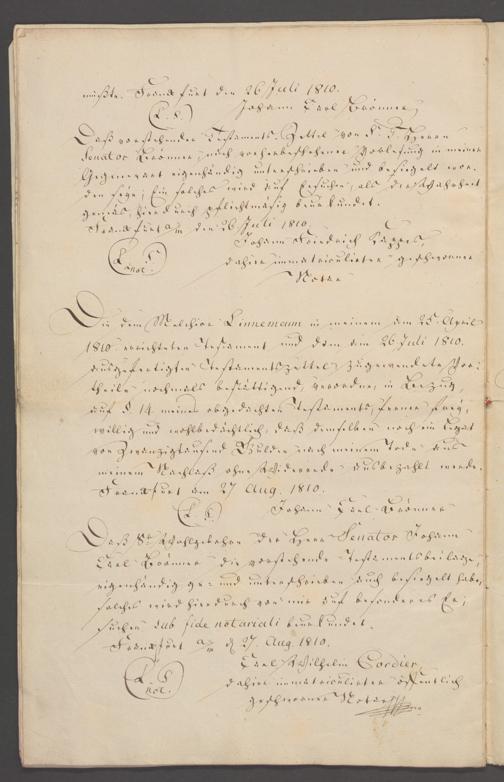 müßte. Frankfurt den 26 Juli 1810.
(L. S.) Johann Carl Brönner,
Daß vorstehender Testaments Zettel von S. T. Herrn
Senator Brönner, nach vorherbeschehener Vorlesung in meiner
Gegenwart eigenhändig unterschrieben und besiegelt wor-
den seye; Ein solches wird auf Ersuchen, als der Wahrheit
gemäs, hierdurch pflichtmäsig beurkundet.
Frankfurt a/m den 26 Juli 1810.
(L. S. not.) Johann Friedrich
dahier immatriculirter geschworner
Notar
Die dem Melchior Linnemann in meinem am 25 April
1810 errichteten Testament und dem am 26 Juli 1810.
ausgefertigten Testamentszettel zugewendete Vor-
theile nochmals bestättigend, verordne, in Bezug
auf § 14 meines obgedachten Testaments, ferner frey-
willig und wohlbedächtlich, daß demselben noch ein Legat
von Zwanzigtausend Gulden nach meinem Tode aus
meinem Nachlaß ohne Widerrede ausbezahlt werde.
Frankfurt am 27 Aug. 1810.
(L. S.) Johann Carl Brönner
Daß Se. Wohlgebohrn der Herr Senator Johann
Carl Brönner die vorstehende Testamentsbeilage,
eigenhändig ge- und unterschrieben auch besiegelt habe,
solches wird hierdurch von mir auf besonderes Er-
suchen sub fide notariali beurkundet.
Frankfurt a/m d. 27. Aug. 1810.
(L. S. not.) Carl Wilhelm Cordier,
dahier immatriculirter öffentlich
geschworner Notar